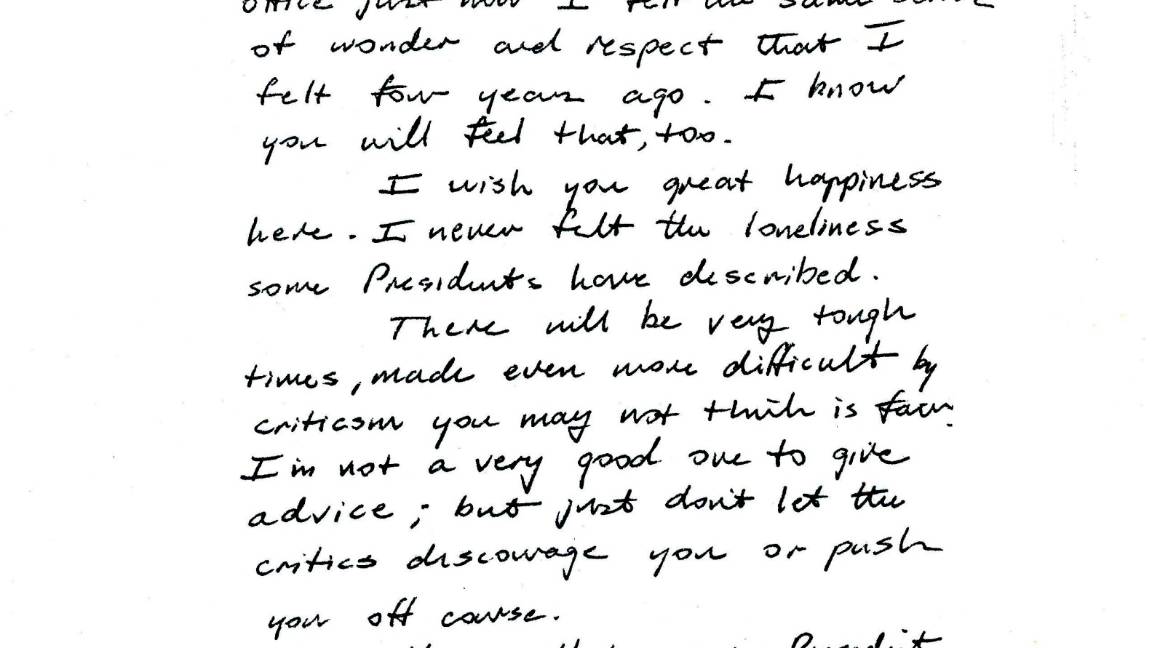 office just now I felt the same sense
of wonder and respect that I
felt four years ago. I know
you will feel that, too.
I wish you great happiness
here. I never felt the loneliness
some Presidents have described.
There will be very tough
times, made even more difficult by
criticism you may not think is fair.
I'm not a very good one to give
advice; but just don't let the
critics discourage you or push
you off course.
President